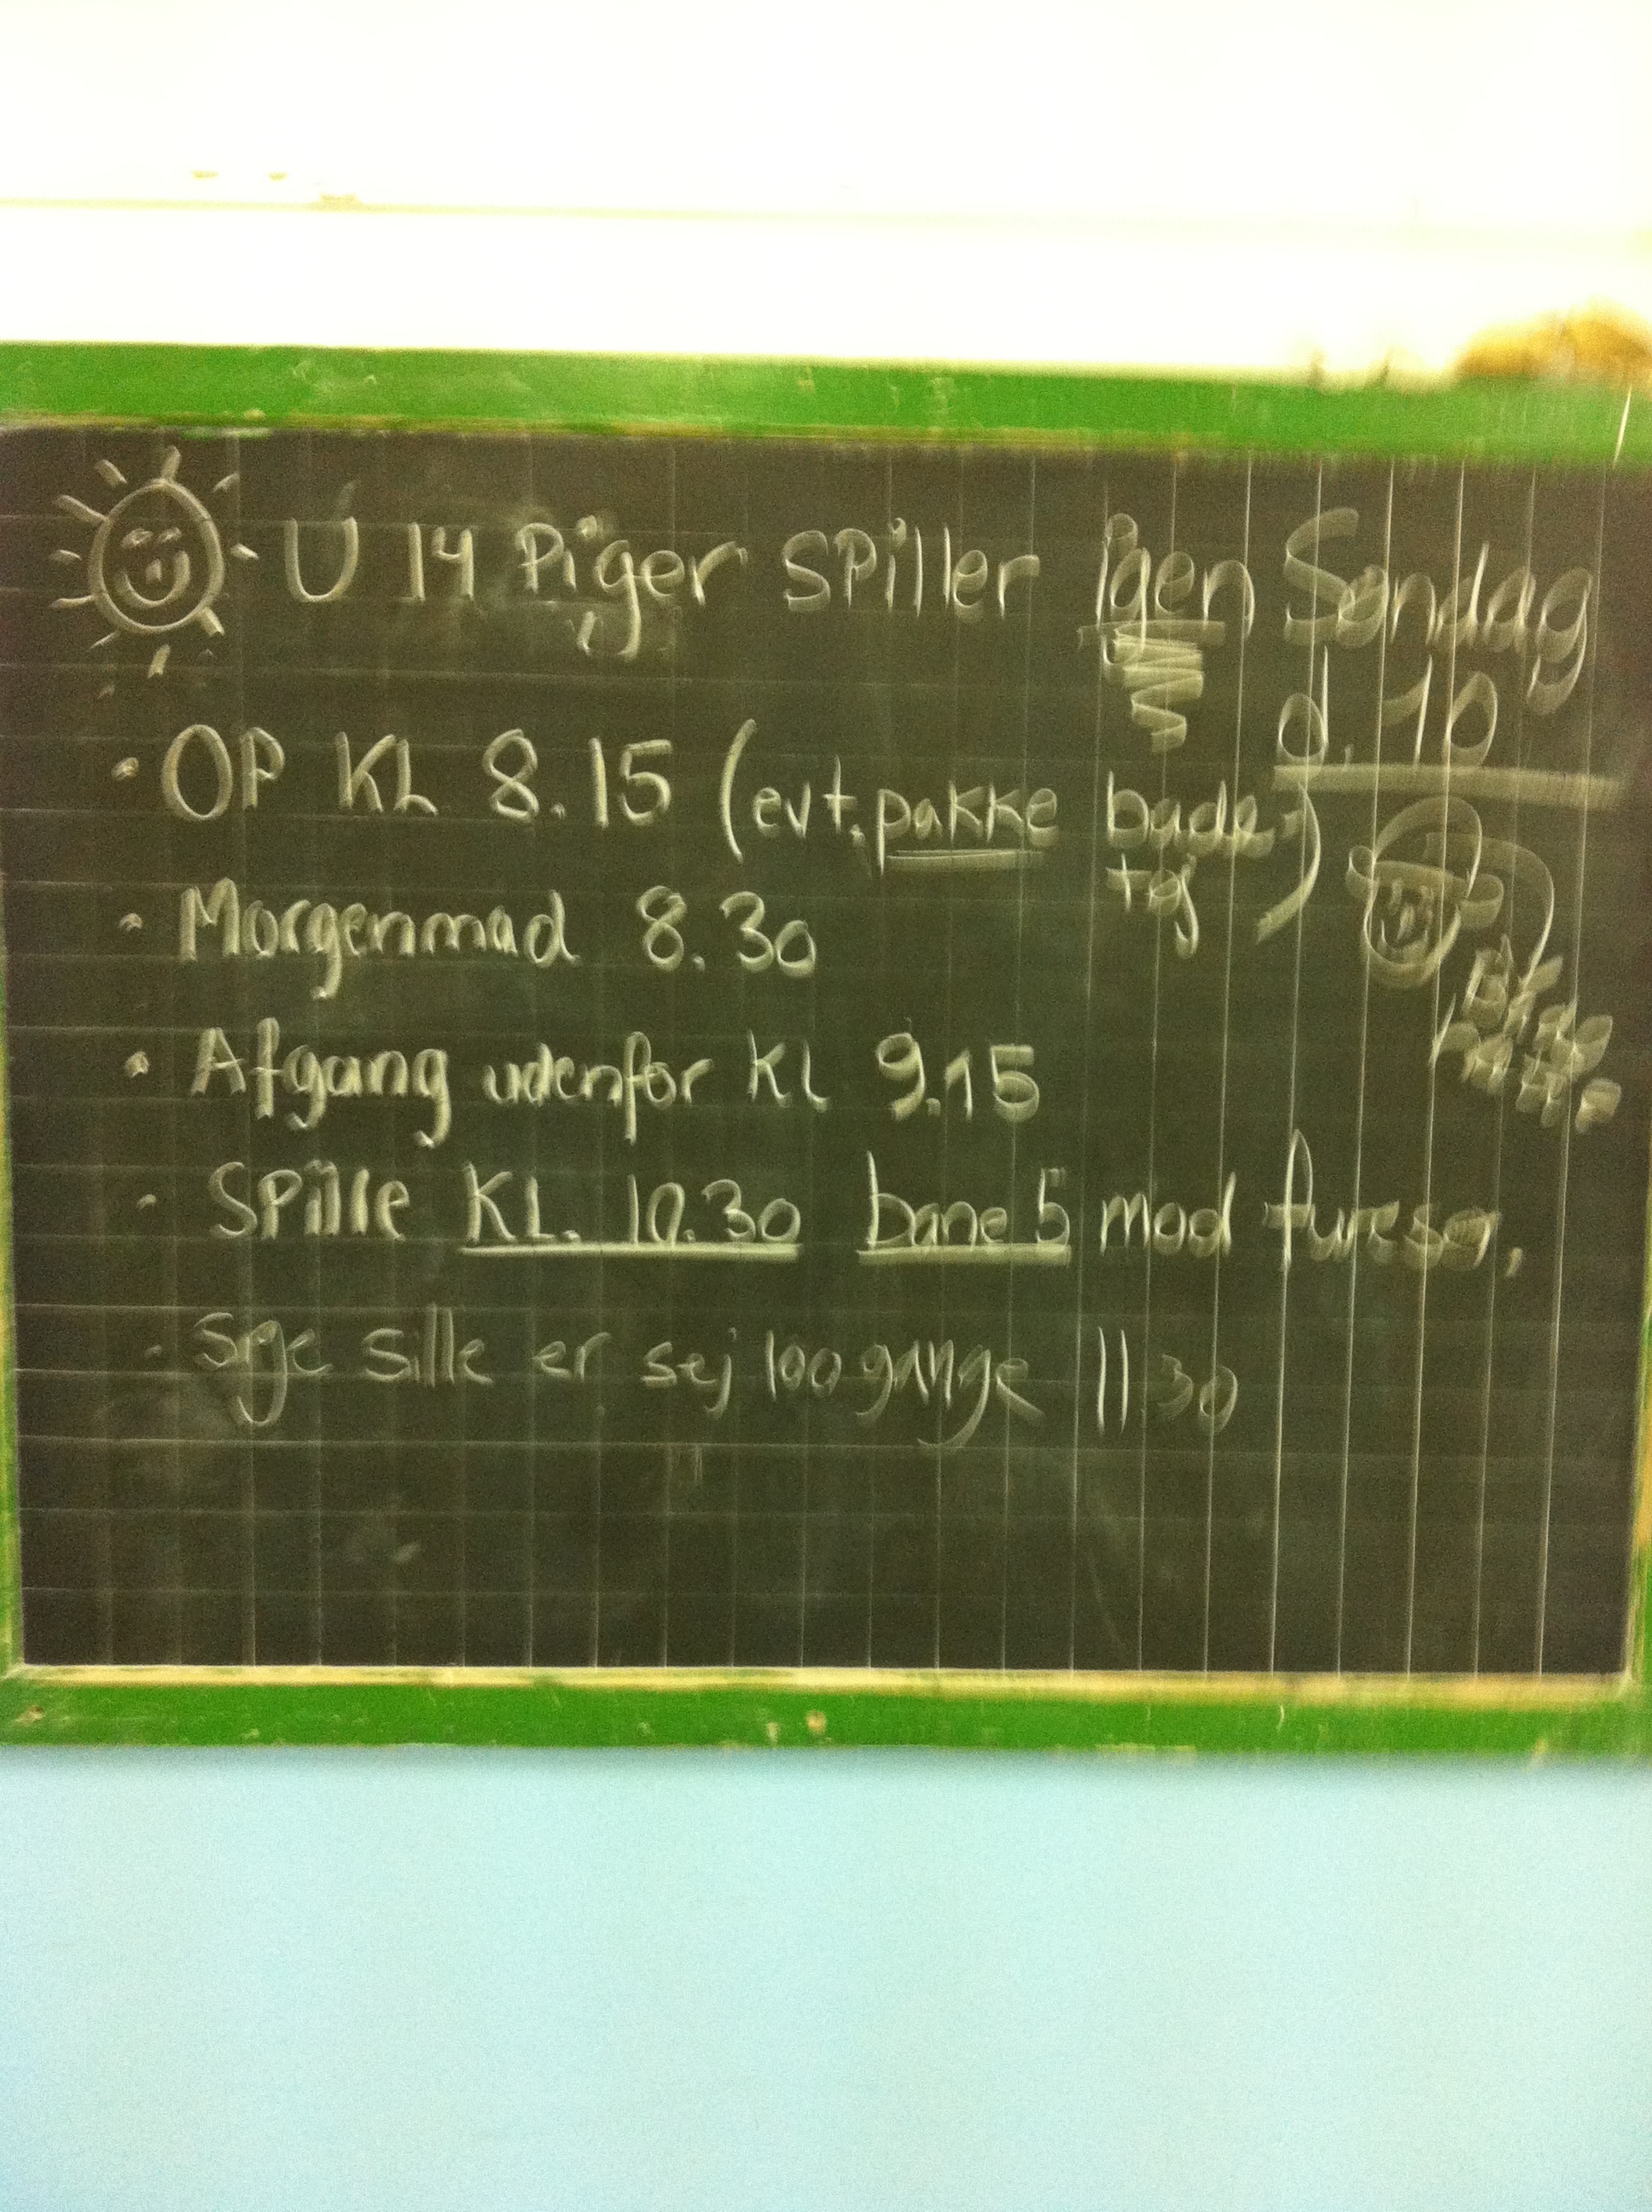 U 14 Piger spiller igen Søndag
d. 10
· OP KL 8.15 (evt. pakke bade
tøj)
· Morgenmad 8.30
· Afgang udenfor kl 9.15
· Spille KL. 10.30 bane 5 mod furesø.
· Sige Sille er sej 100 gange 11 30